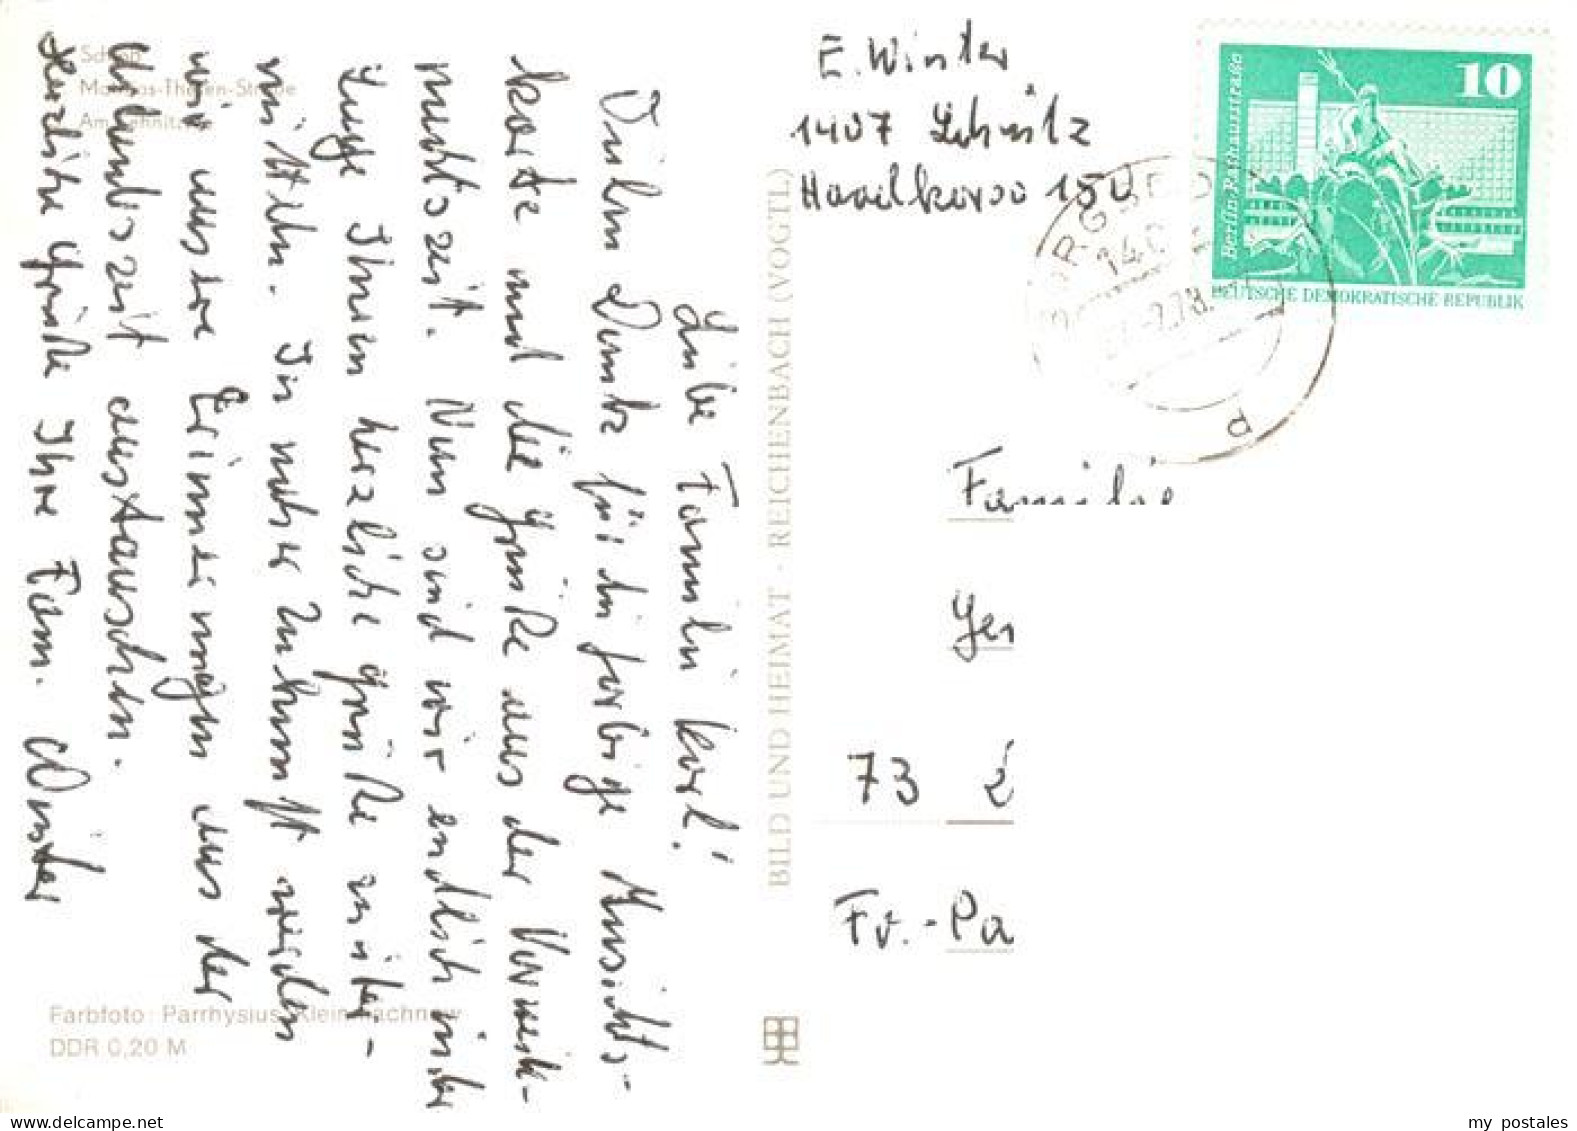 Schloß
Matthias-Thesen-Straße
Am Lehnitzsee
Liebe Familie Karl!
Vielen Dank für die farbige Ansichts-
karte und die Grüße aus der Vorweih-
nachtszeit. Nun sind wir endlich in der
Lage Ihnen herzliche Grüße zu über-
mitteln. In naher Zukunft werden
wir unsere Erinnerungen aus der
Urlaubszeit austauschen.
Herzliche Grüße Ihre Fam. Winter
Farbfoto: Parrhysius, Kleinmachnow
DDR 0,20 M
BILD UND HEIMAT · REICHENBACH (VOGTL)
E. Winter
1407 Lehnitz
15
10
Berlin, Rathausstraße
DEUTSCHE DEMOKRATISCHE REPUBLIK
140
d
Familie
Ger
73
Fr.-Pa
www.delcampe.net
my_postales